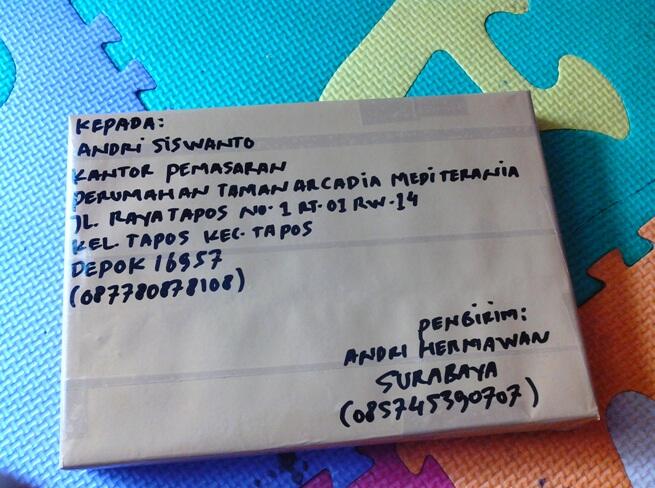 KEPADA:
ANDRI SISWANTO
KANTOR PEMASARAN
PERUMAHAN TAMAN ARCADIA MEDITERANIA
JL. RAYA TAPOS NO. 1 RT. 01 RW. 14
KEL. TAPOS KEC. TAPOS
DEPOK 16957
(087780878108)
PENGIRIM:
ANDRI HERMAWAN
SURABAYA
(085745390707)